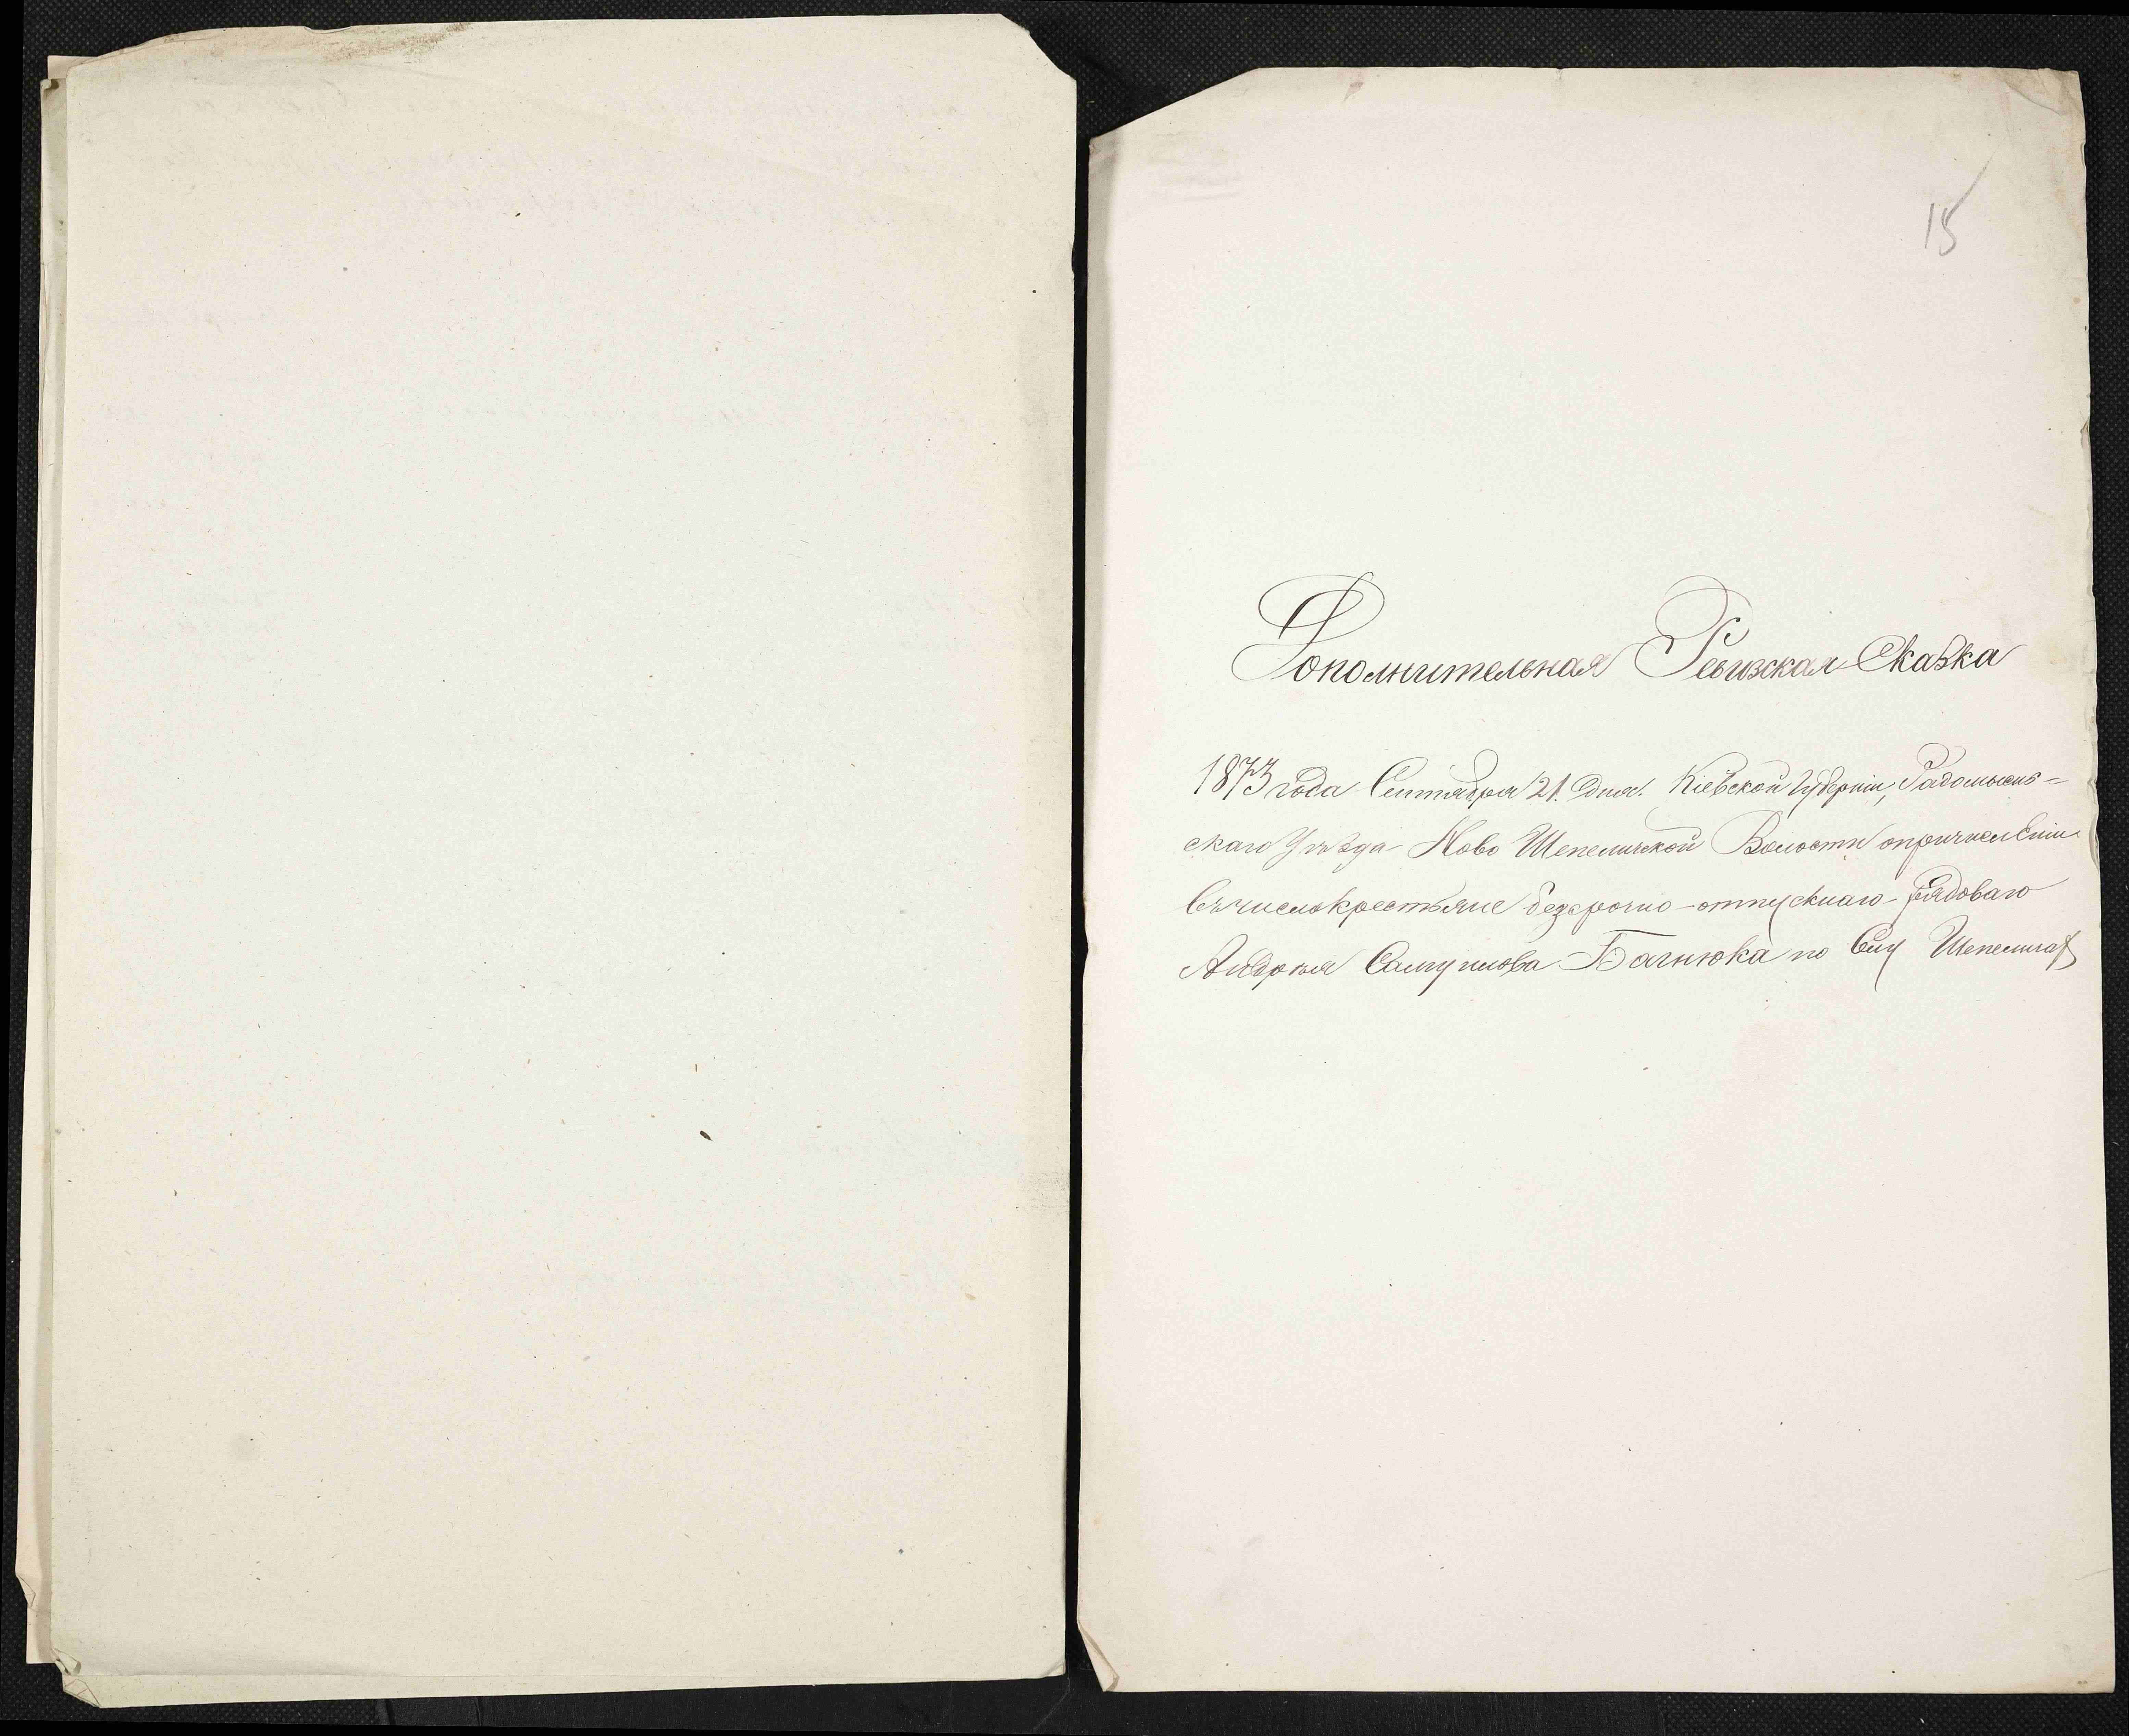 15
Дополнительная Ревизская Сказка
1873 года Сентября 21. дня. Кіевской Губерніи, Радомысль-
скаго Уѣзда Ново Шепеличской Волости опричисленіи
въчислокрестьяне безсрочно-отпускнаго рядоваго
Андрея Самуилова Багнюка по Селу Шепеличах